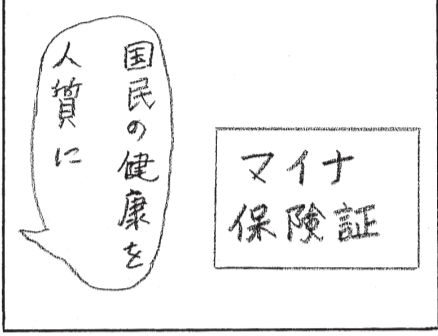 国民の健康を
人質に
マイナ
保険証